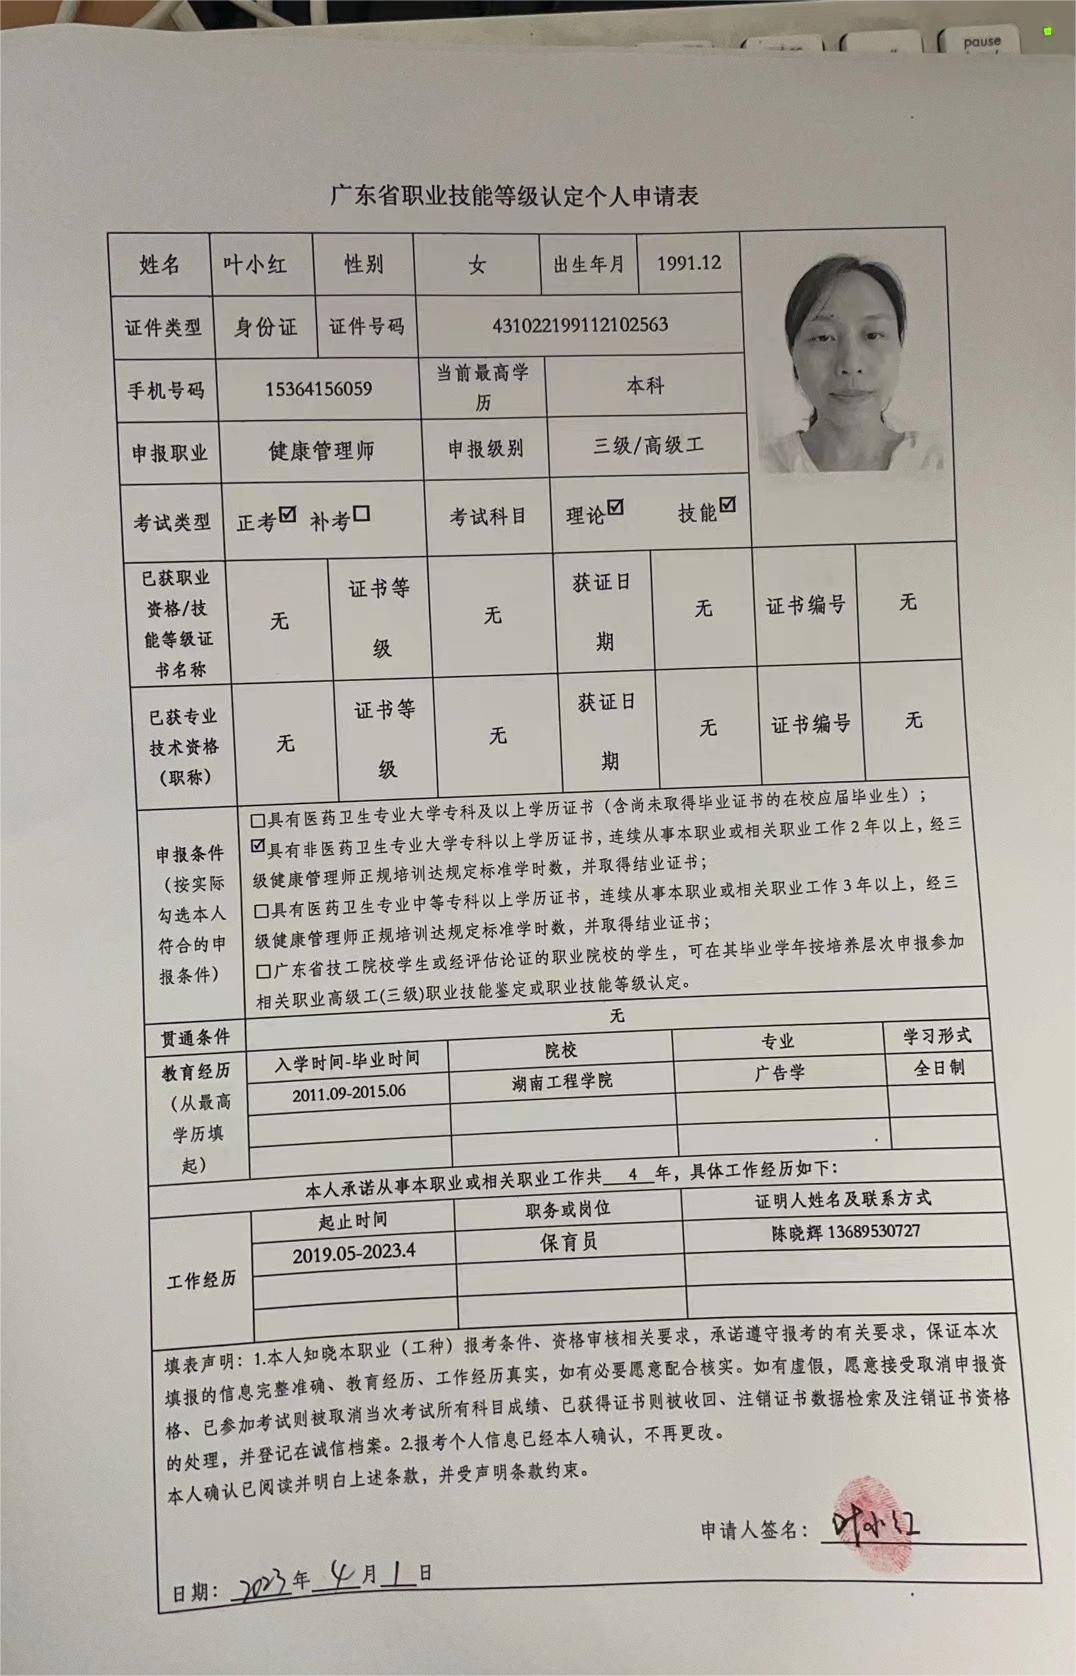 pause
广东省职业技能等级认定个人申请表
姓名 叶小红 性别 女 出生年月 1991.12
证件类型 身份证 证件号码 431022199112102563
手机号码 15364156059 当前最高学
历 本科
申报职业 健康管理师 申报级别 三级/高级工
考试类型 正考☑ 补考☐ 考试科目 理论☑ 技能☑
已获职业
资格/技
能等级证
书名称 无 证书等
级 无 获证日
期 无 证书编号 无
已获专业
技术资格
（职称） 无 证书等
级 无 获证日
期 无 证书编号 无
申报条件
（按实际
勾选本人
符合的申
报条件）
☐具有医药卫生专业大学专科及以上学历证书（含尚未取得毕业证书的在校应届毕业生）；
☑具有非医药卫生专业大学专科以上学历证书，连续从事本职业或相关职业工作2年以上，经三
级健康管理师正规培训达规定标准学时数，并取得结业证书；
☐具有医药卫生专业中等专科以上学历证书，连续从事本职业或相关职业工作3年以上，经三
级健康管理师正规培训达规定标准学时数，并取得结业证书；
☐广东省技工院校学生或经评估论证的职业院校的学生，可在其毕业学年按培养层次申报参加
相关职业高级工(三级)职业技能鉴定或职业技能等级认定。
贯通条件 无
教育经历
（从最高
学历填
起）
入学时间-毕业时间 院校 专业 学习形式
2011.09-2015.06 湖南工程学院 广告学 全日制
本人承诺从事本职业或相关职业工作共 4 年，具体工作经历如下：
工作经历
起止时间 职务或岗位 证明人姓名及联系方式
2019.05-2023.4 保育员 陈晓辉 13689530727
填表声明：1.本人知晓本职业（工种）报考条件、资格审核相关要求，承诺遵守报考的有关要求，保证本次
填报的信息完整准确、教育经历、工作经历真实，如有必要愿意配合核实。如有虚假，愿意接受取消申报资
格、已参加考试则被取消当次考试所有科目成绩、已获得证书则被收回、注销证书数据检索及注销证书资格
的处理，并登记在诚信档案。2.报考个人信息已经本人确认，不再更改。
本人确认已阅读并明白上述条款，并受声明条款约束。
申请人签名：叶小红
日期：2023年4月1日